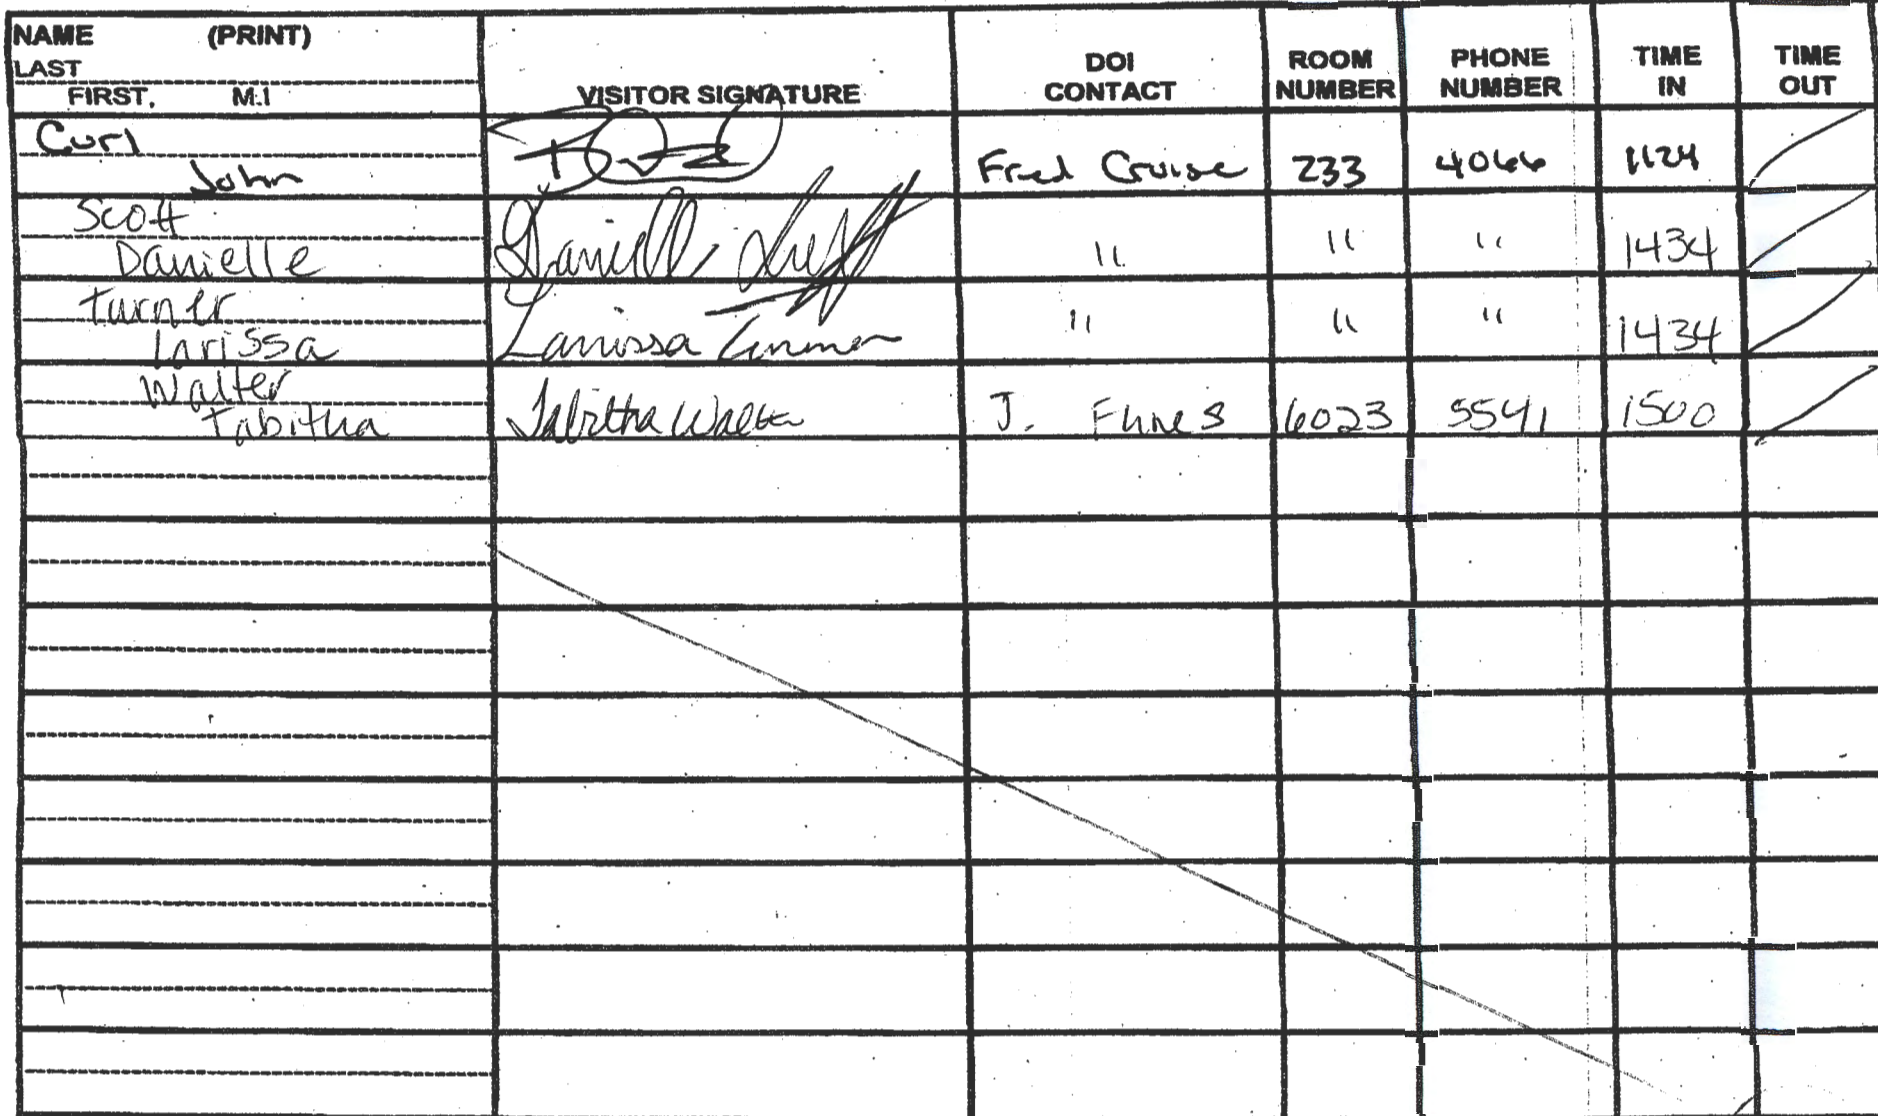 NAME (PRINT)
LAST
FIRST, M.I
VISITOR SIGNATURE
DOI
CONTACT
ROOM
NUMBER
PHONE
NUMBER
TIME
IN
TIME
OUT
Curl
John
Fred Cruise 233 4066 1124
Scott
Danielle
Danielle
" " " 1434
Turner
Larissa
Larissa Turner
" " " 1434
Walter
Tabitha
Tabitha Walter
J. 6023 5541 1500